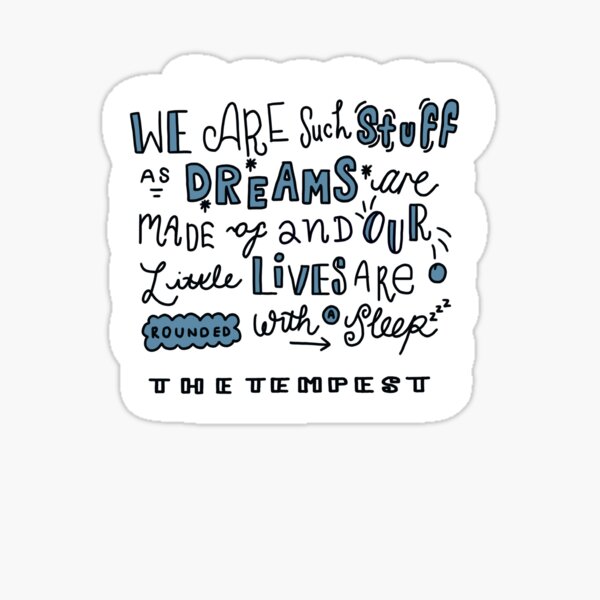 WE ARE Such Stuff
AS DREAMS are
MADE of and OUR
Little LIVES ARE
ROUNDED with A Sleep zzz
THE TEMPEST